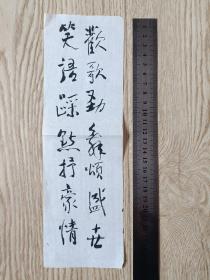 歡歌勁舞頌盛世
笑語踩然抒豪情